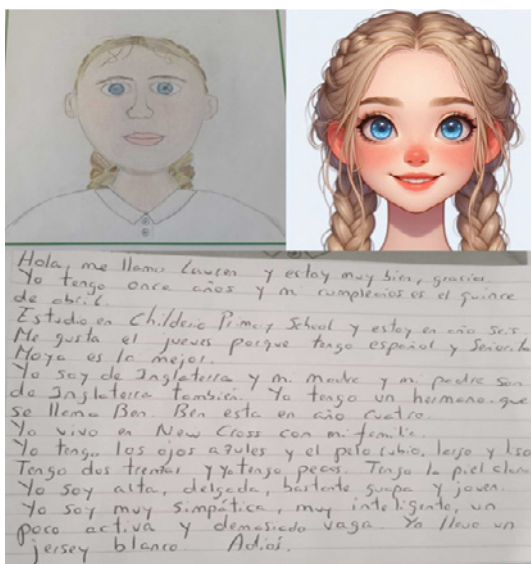 Hola, me llamo Lauren y estoy muy bien, gracias.
Yo tengo once años y mi cumpleaños es el quince
de abril.
Estudio en Childeric Primary School y estoy en año seis.
Me gusta el jueves porque tengo español y Señorita
Moya es la mejor.
Yo soy de Inglaterra y mi madre y mi padre son
de Inglaterra también. Yo tengo un hermano que
se llama Ben. Ben esta en año cuatro.
Yo vivo en New Cross con mi familia.
Yo tengo los ojos azules y el pelo rubio, largo y liso
Tengo dos trenzas y yo tengo pecas. Tengo la piel clara
Yo soy alta, delgada, bastante guapa y joven.
Yo soy muy simpática, muy inteligente, un
poco activa y demasiado vaga. Yo llevo un
jersey blanco. Adiós.